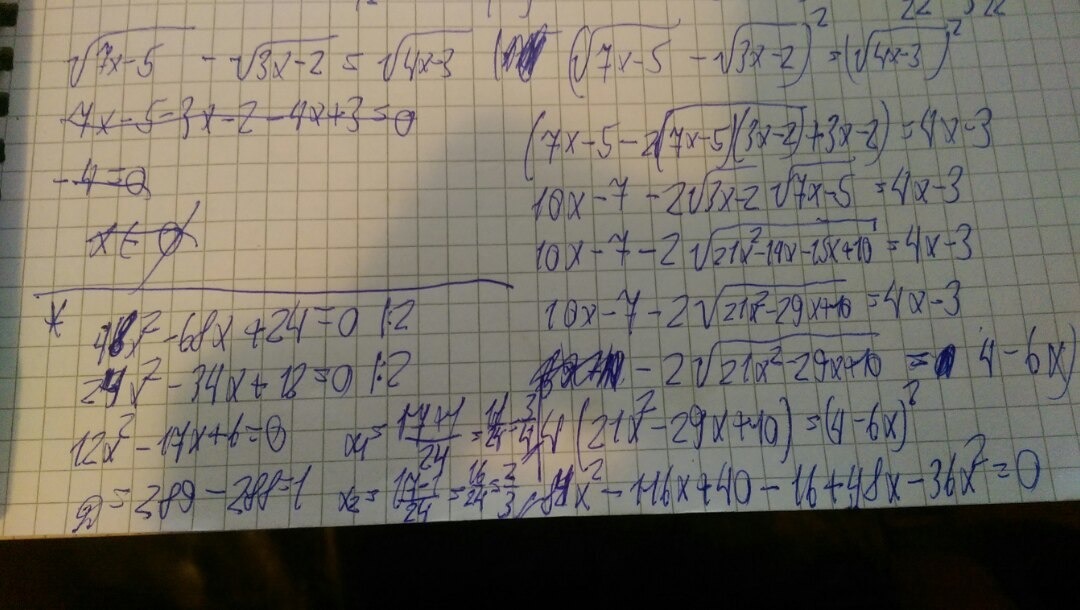 √7x-5 - √3x-2 = √4x-3
7x-5-3x-2-4x+3=0
-4=0
x∈Ø
(√7x-5 - √3x-2)² = (√4x-3)²
(7x-5-2√(7x-5)(3x-2)+3x-2)=4x-3
10x-7-2√3x-2 √7x-5 = 4x-3
10x-7-2√21x²-14x-15x+10 = 4x-3
10x-7-2√21x²-29x+10 = 4x-3
-2√21x²-29x+10 = 4-6x)
4(21x²-29x+10)=(4-6x)²
84x²-116x+40-16+48x-36x²=0
* 48x²-68x+24=0 |:2
24x²-34x+12=0 |:2
12x²-17x+6=0
D=289-288=1
x₁=17+1/24=18/24=3/4
x₂=17-1/24=16/24=2/3